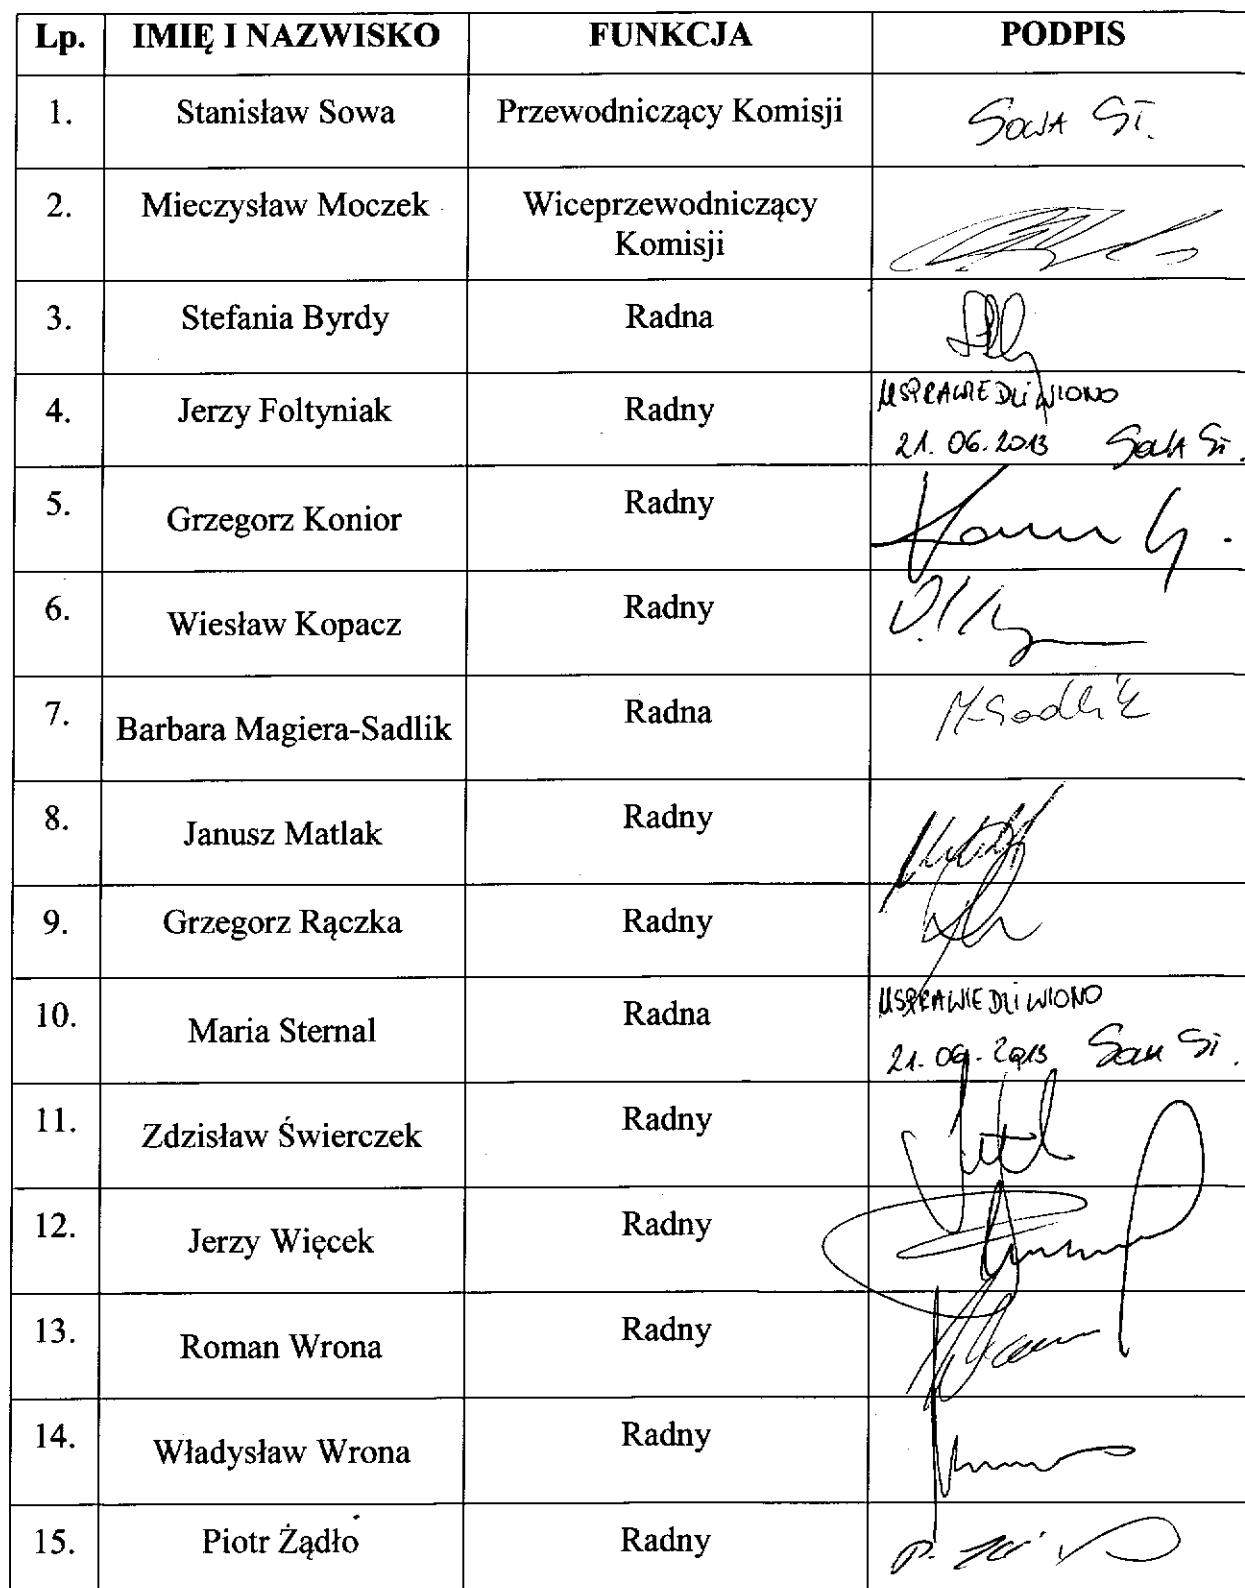 Lp. IMIĘ I NAZWISKO FUNKCJA PODPIS
1. Stanisław Sowa Przewodniczący Komisji SOWA ST.
2. Mieczysław Moczek Wiceprzewodniczący
Komisji
3. Stefania Byrdy Radna
4. Jerzy Foltyniak Radny USPRAWIEDLIWIONO
21.06.2013 Sowa St.
5. Grzegorz Konior Radny
6. Wiesław Kopacz Radny
7. Barbara Magiera-Sadlik Radna M-Sadlik
8. Janusz Matlak Radny
9. Grzegorz Rączka Radny
10. Maria Sternal Radna USPRAWIEDLIWIONO
21.06.2013 Sowa St.
11. Zdzisław Świerczek Radny
12. Jerzy Więcek Radny
13. Roman Wrona Radny
14. Władysław Wrona Radny
15. Piotr Żądło Radny